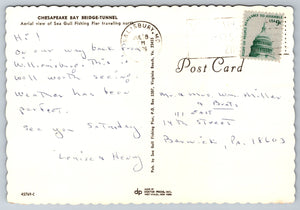 CHESAPEAKE BAY BRIDGE-TUNNEL
Aerial view of Sea Gull Fishing Pier traveling north
Hi!
On our way back from
Williamsburg. This is
well worth seeing.
Weather has been
perfect.
See you Saturday
Louise & Henry
Post Card
Mr. & Mrs. Wm. Miller
& Boots
111 East
14th Street
Berwick, Pa. 18603
Pub. by Sea Gull Fishing Pier, P.O. Box
Virginia Beach, Va.
dp
MADE BY
DEXTER PRESS, INC.
WEST NYACK, NEW YORK